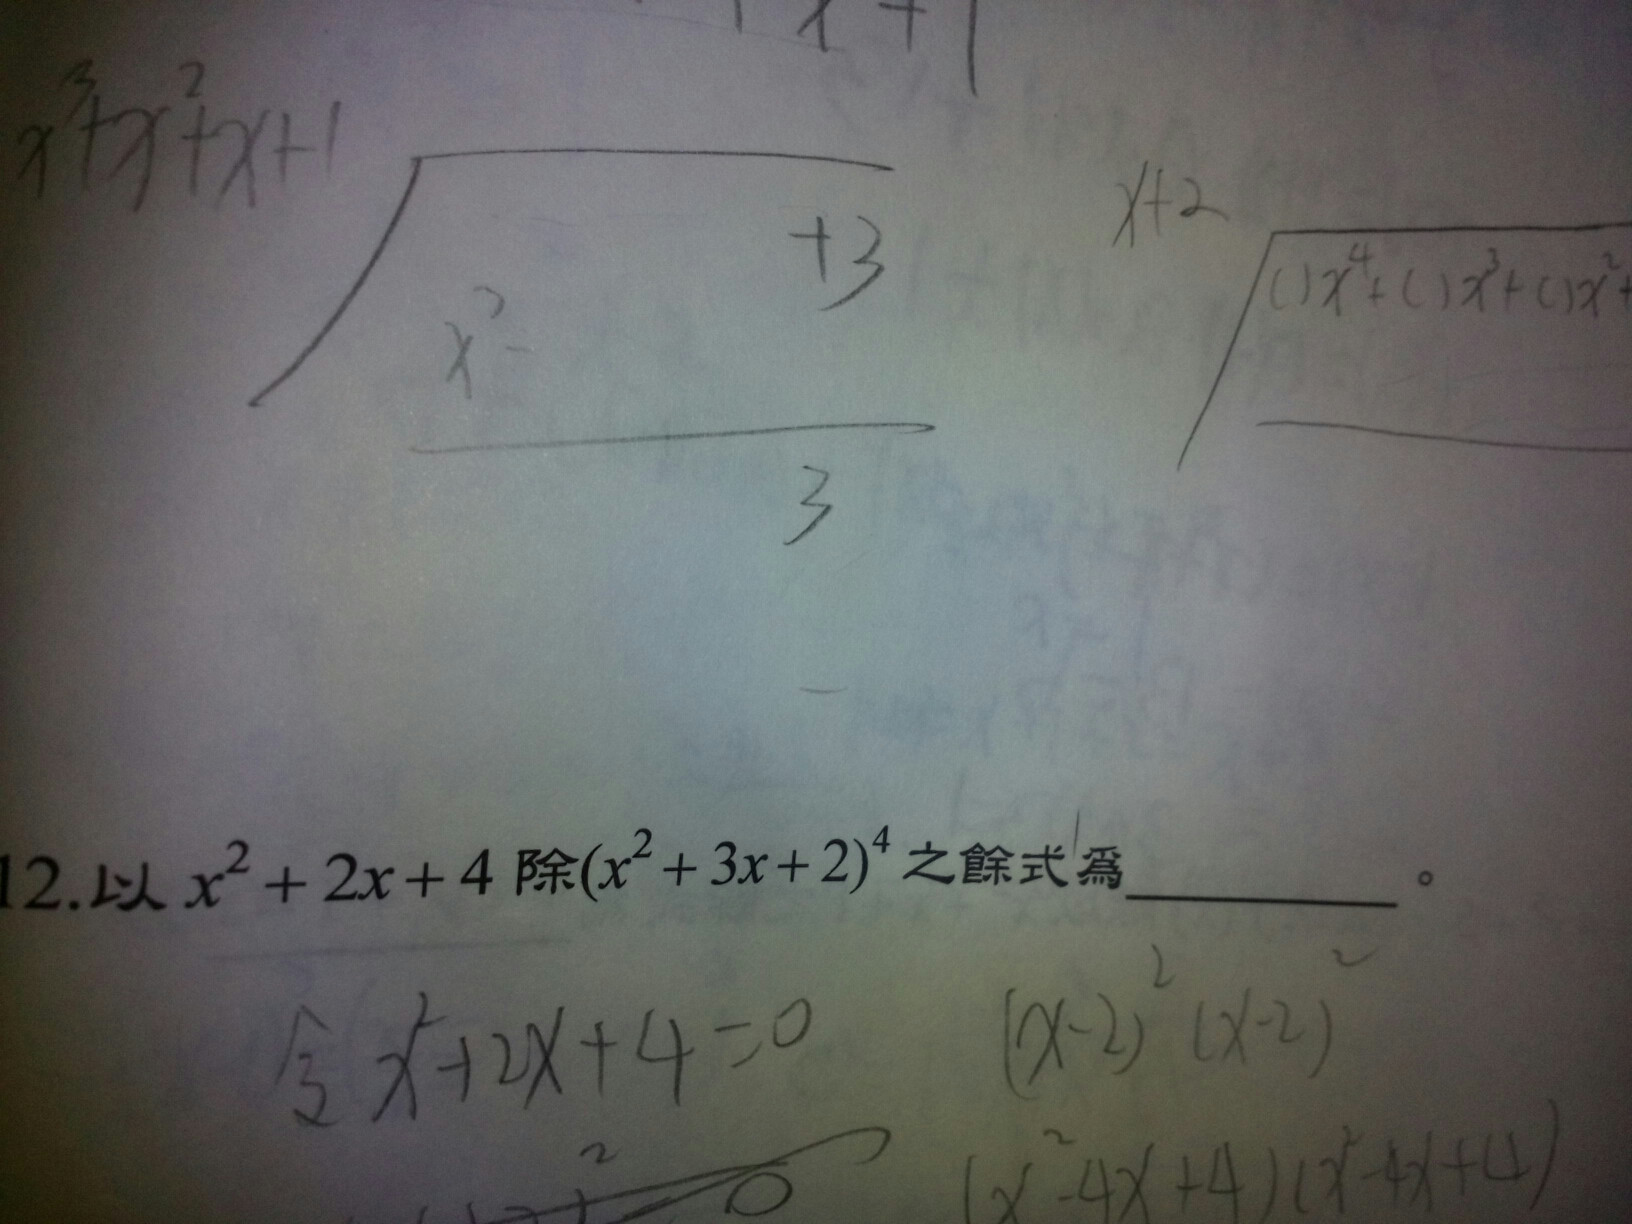 x+1
x³+x²+x+1
+3
x³-
3
x+2
()x⁴+()x³+()x²+
12.以 x²+2x+4 除(x²+3x+2)⁴ 之餘式為 ________。
令 x²+2x+4=0
(x-2)²(x-2)²
(x²-4x+4)(x²-4x+4)